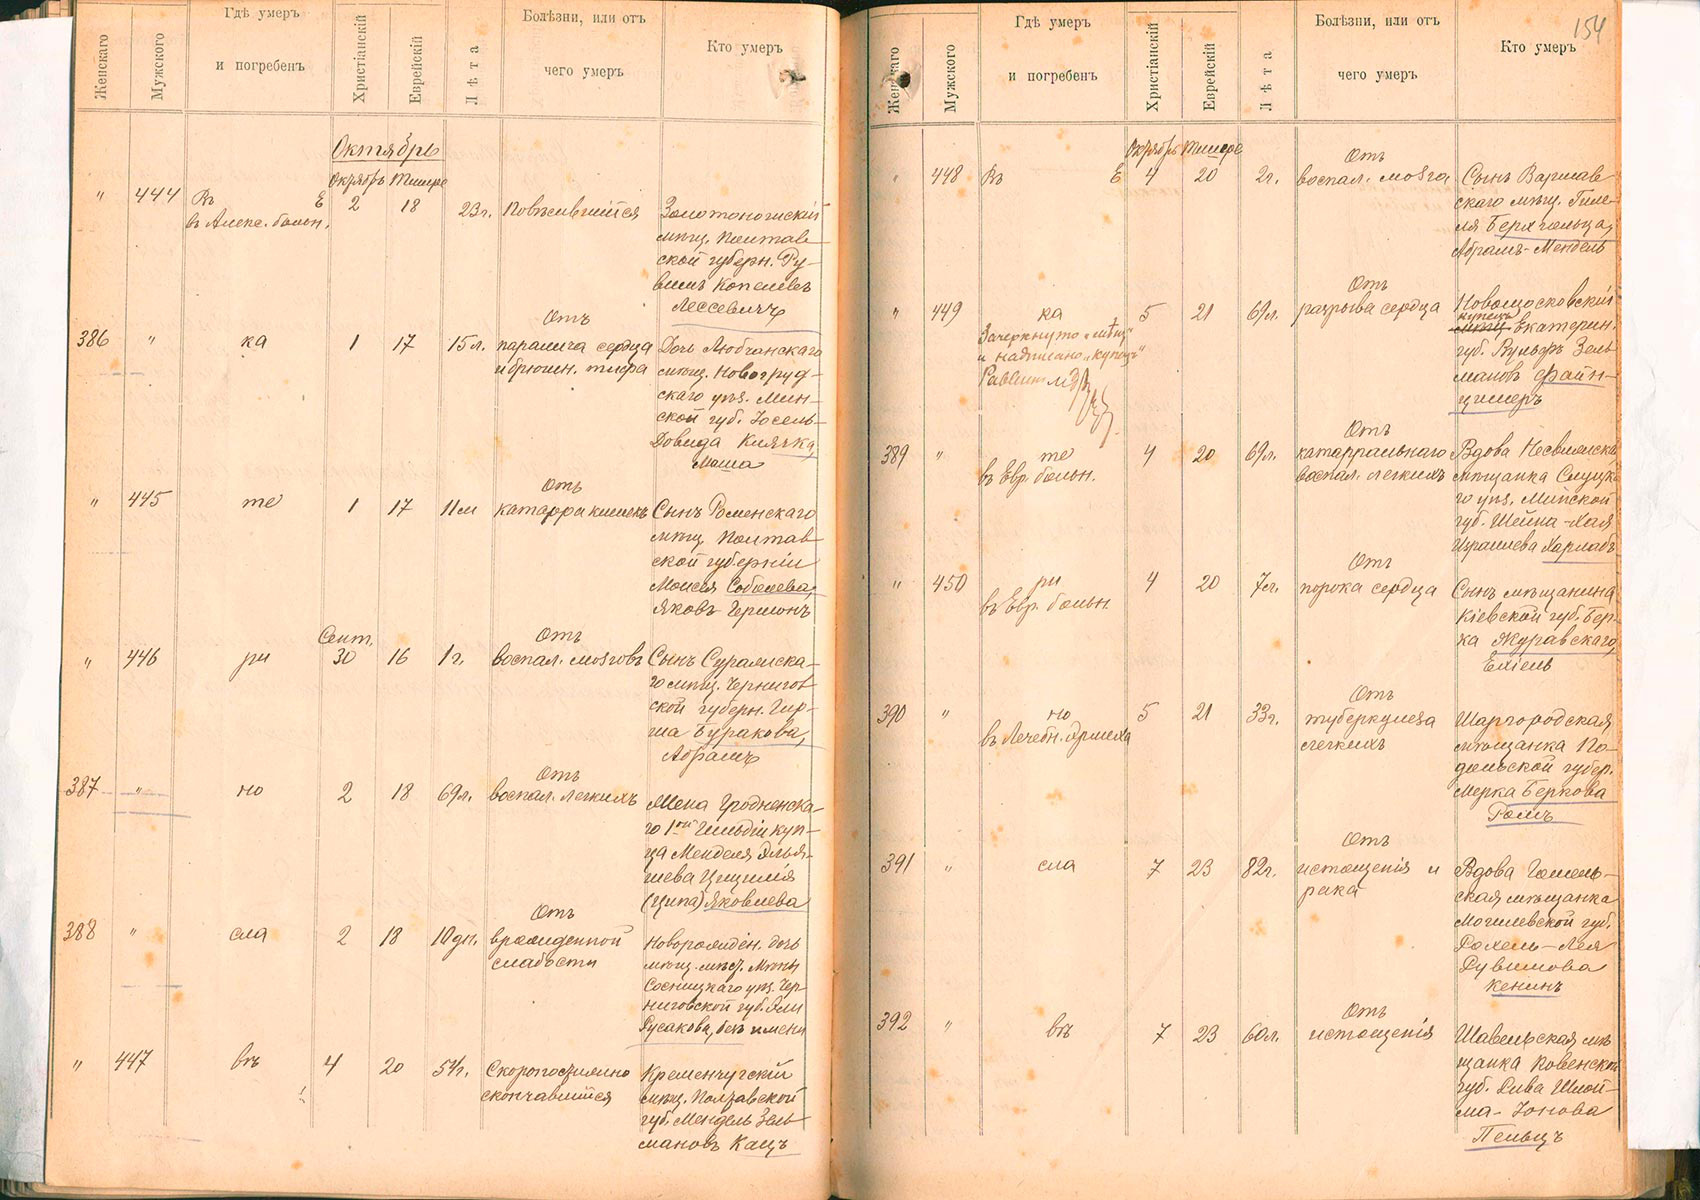 Женскаго
Мужского
Гдѣ умеръ
и погребенъ
Христіанскій
Еврейскій
Лѣта
Болѣзни, или отъ
чего умеръ
Кто умеръ
Октябрь
Октябрь Тишре
" 444 Въ Е 2 18 23г. Повѣсившійся
въ Алекс. больн.
Золотоношскій
мѣщ. Полтав-
ской губерн. Ру-
вимъ Копелевъ
Лессевичъ
386 " ка 1 17 15л.
Отъ
паралича сердца
и брюшн. тифа
Дочь Любчанскаго
мѣщ. Новогруд-
скаго уѣз. Мин-
ской губ. Іосель-
Довида Клячка,
Маша
" 445 те 1 17 11м
Отъ
катарра кишекъ
Сынъ Роменскаго
мѣщ. Полтав
ской губерніи
Моисея Соболева,
Яковъ Герцонъ
" 446 ри Сент. 30 16 1г.
Отъ
воспал. мозговъ
Сынъ Суражска-
го мѣщ. Чернигов
ской губерн. Гир-
ша Буракова,
Абрамъ
387 " но 2 18 69л.
Отъ
воспал. легкихъ
Жена Гродненска-
го 1ой гильдіи куп-
ца Менделя Элья-
шева Цецилія
(Ципа) Яковлева
388 " сла 2 18 10дн.
Отъ
врожденной
слабости
Новорожден. дочь
мѣщ. мѣст. Мѣны
Сосницкаго уѣз. Чер-
ниговской губ. Эли
Русакова, безъ имени
" 447 въ 4 20 54г.
Скоропостижно
скончавшійся
Кременчугскій
мѣщ. Полтавской
губ. Мендель Зель-
мановъ Кацъ
154
Женскаго
Мужского
Гдѣ умеръ
и погребенъ
Христіанскій
Еврейскій
Лѣта
Болѣзни, или отъ
чего умеръ
Кто умеръ
Октябрь Тишре
" 448 Въ Е 4 20 2г.
Отъ
воспал. мозга
Сынъ Варшав
скаго мѣщ. Гиле-
ля Бергхольца,
Абрамъ-Мендель
" 449 ка 5 21 61л.
Зачеркнуто „мѣщ"
и надписано „купецъ"
Раввинъ
Отъ
разрыва сердца
Новомосковскій
купецъ
мѣщ. Екатерин.
губ. Вульфъ Зель
мановъ Файн-
цимеръ
389 " те 4 20 61л.
въ Евр. больн.
Отъ
катарральнаго
воспал. легкихъ
Вдова Несвижска
мѣщанка Слуцка
го уѣз. Минской
губ. Шейна-Хая
Израилева Харлабъ
" 450 ри 4 20 7л.
въ Евр. больн.
Отъ
порока сердца
Сынъ мѣщанина
Кіевской губ. Бер-
ка Журавскаго,
Ехіель
390 " но 5 21 33г.
въ Лечебн.
Отъ
туберкулеза
легкихъ
Шаргородская
мѣщанка По-
дольской губер.
Мерка Беркова
Ромъ
391 " сла 7 23 82г.
Отъ
истощенія и
рака
Вдова Гомель-
ская мѣщанка
Могилевской губ.
Рохель-Лея
Рувимова
Кенинъ
392 " въ 7 23 60л.
Отъ
истощенія
Шавельская мѣ
щанка Ковенской
губ. Хива Шлой-
ма-Іонова
Пельцъ